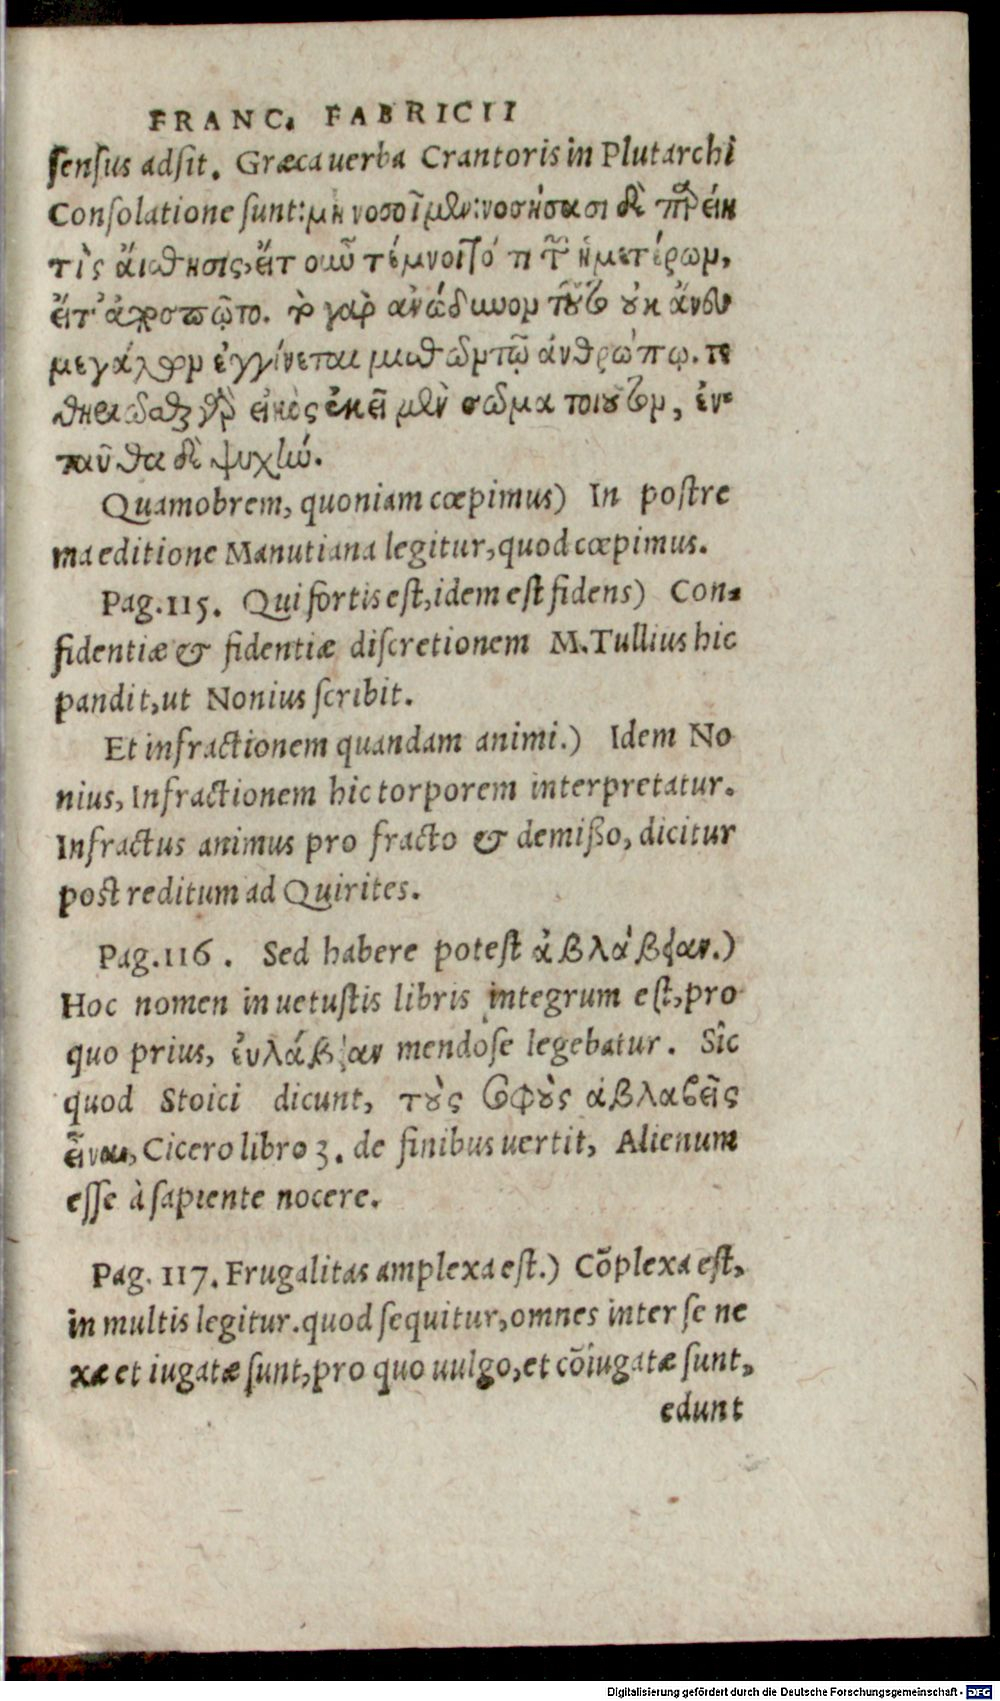 FRANC. FABRICII
sensus adsit. Græca uerba Crantoris in Plutarchi
Consolatione sunt: μὴ νοσοῖμεν: νοσήσασι δὲ παρείη
τὶς ἄισθησις, εἴτ οὖν τέμνοιτό τι τῶν ἡμετέρων,
εἴτ' ἀποσπῷτο. τὸ γὰρ ἀνώδυνον τοῦτο οὐκ ἄνευ
μεγάλων ἐγγίνεται μισθῶν τῷ ἀνθρώπῳ. τε
θηριῶσθαι γὰρ εἰκὸς ἐκεῖ μὲν σῶμα τοιοῦτον, ἐν-
ταῦθα δὲ ψυχήν.
Quamobrem, quoniam cœpimus) In postre
ma editione Manutiana legitur, quod cœpimus.
Pag. 115. Qui fortis est, idem est fidens) Con-
fidentiæ & fidentiæ discretionem M. Tullius hic
pandit, ut Nonius scribit.
Et infractionem quandam animi.) Idem No
nius, Infractionem hic torporem interpretatur.
Infractus animus pro fracto & demißo, dicitur
post reditum ad Quirites.
Pag. 116. Sed habere potest ἀβλάβειαν.)
Hoc nomen in uetustis libris integrum est, pro
quo prius, ἐυλάβειαν mendose legebatur. Sic
quod Stoici dicunt, τοὺς σοφοὺς ἀβλαβεῖς
εἶναι, Cicero libro 3. de finibus uertit, Alienum
esse à sapiente nocere.
Pag. 117. Frugalitas amplexa est.) Cõplexa est,
in multis legitur. quod sequitur, omnes inter se ne
xæ et iugatæ sunt, pro quo uulgo, et cõiugatæ sunt,
edunt
Digitalisierung gefördert durch die Deutsche Forschungsgemeinschaft - DFG